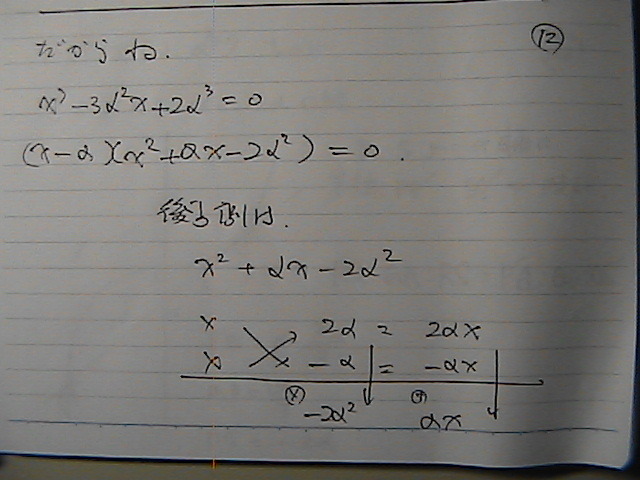 ⑫
だからね.
x³-3α²x+2α³=0
(x-α)(x²+αx-2α²)=0.
後ろ側は.
x²+αx-2α²
x 2α = 2αx
x -α = -αx
-2α² αx